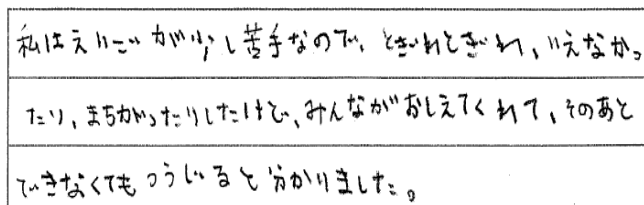 私はえいごが少し苦手なので、とぎれとぎれ、いえなかっ
たり、まちがったりしたけど、みんながおしえてくれて、そのあと
できなくてもつうじると分かりました。